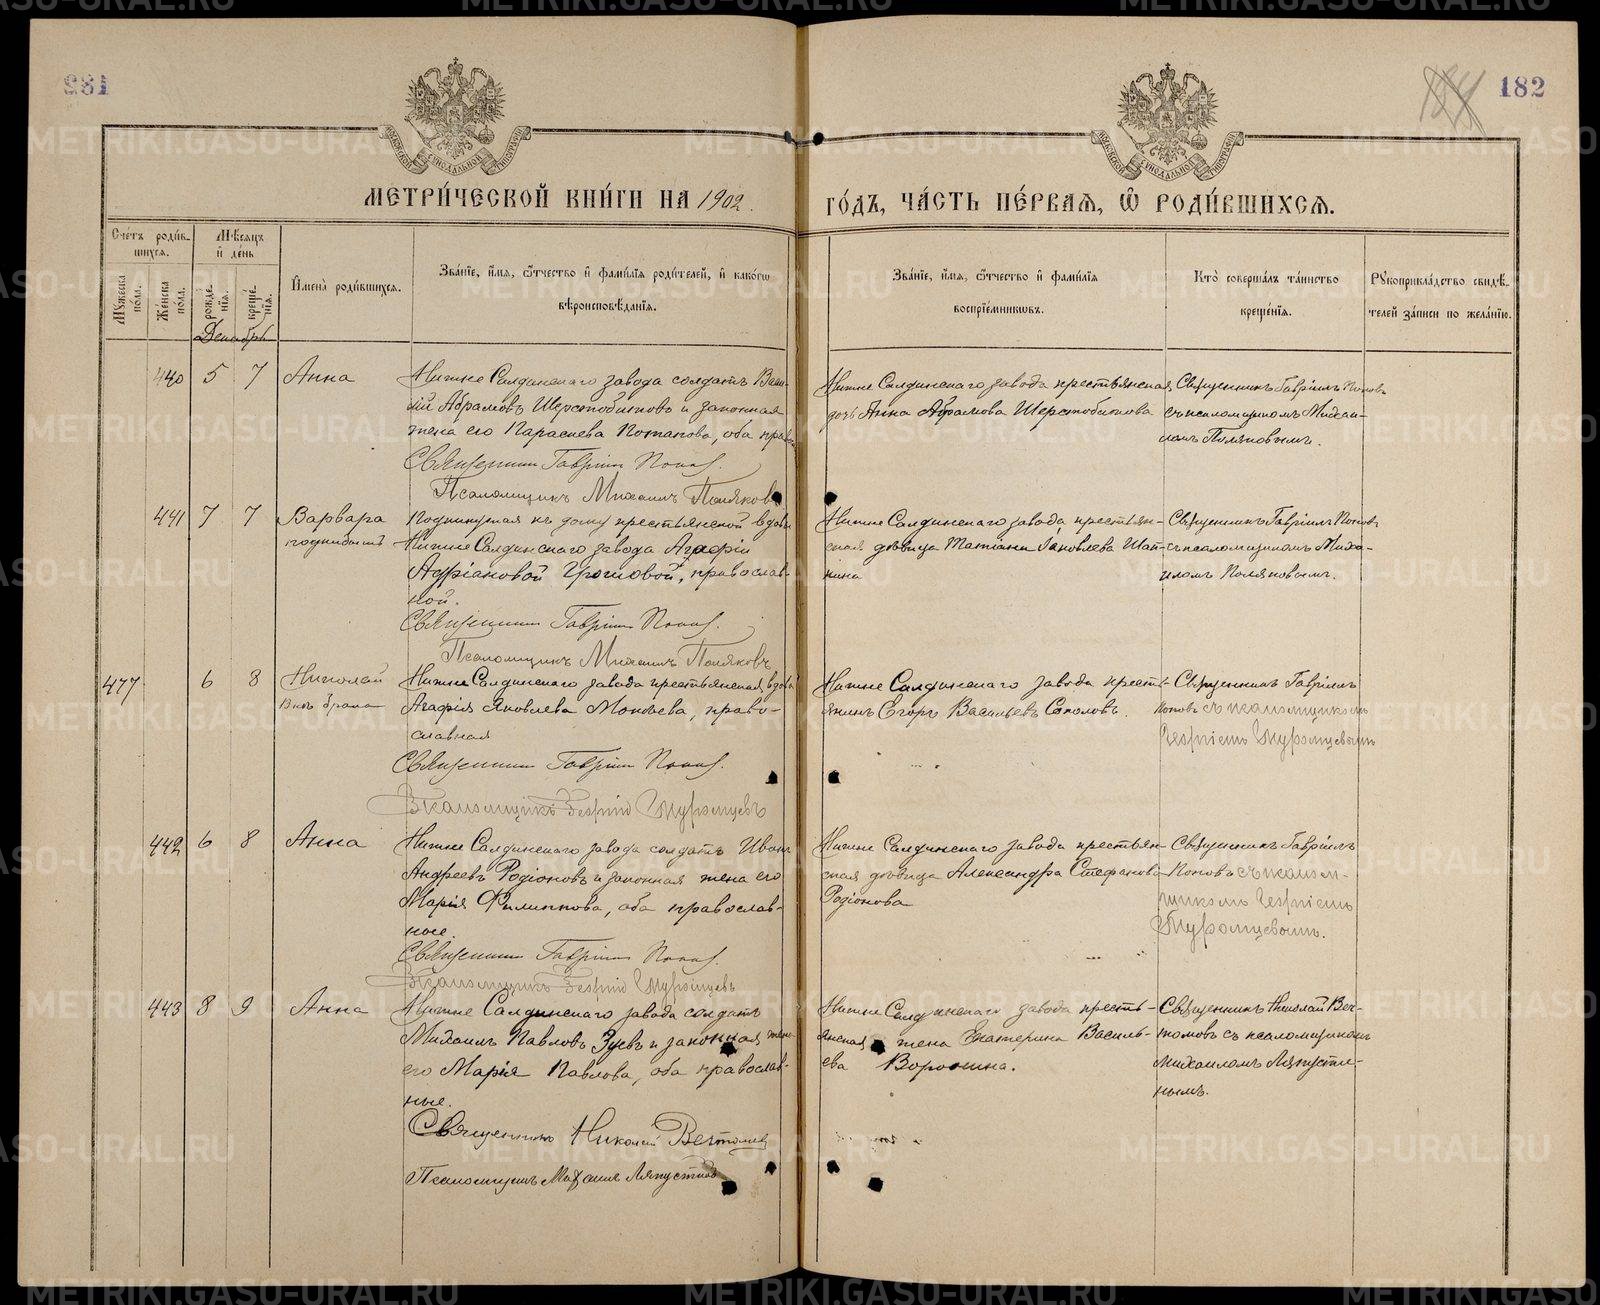 181
182
МЕТРИ́ЧЕСКОЙ КНИ́ГИ НА 1902
ГО́ДЪ, ЧА́СТЬ ПЕ́РВАѦ, Ѽ РОДИ́ВШИХСѦ.
Сче́тъ роди́в-
шихсѧ.
Мѣ́сѧцъ
и҆ де́нь
Мꙋ́жеска
пола.
Же́нска
по́ла.
рожде́-
нїѧ.
креще́-
нїѧ.
И҆мена̀ роди́вшихсѧ.
Зва́нїе, и҆́мѧ, ѻ҆́тчество и҆ фами́лїѧ роди́телей, и҆ како́гѡ
вѣроисповѣ́данїѧ.
Зва́нїе, и҆́мѧ, ѻ҆́тчество и҆ фами́лїѧ
воспрїе́мникѡвъ.
Кто̀ соверша́лъ та́инство
креще́нїѧ.
Рꙋкоприкла́дство свидѣ́-
телей за́писи по жела́нїю.
Декабрь
440 5 7 Анна
Нижне Салдинскаго завода солдатъ Васи-
лій Абрамовъ Шерстобитовъ и законная
жена его Параскева Потапова, оба
Священникъ Гавріилъ Поповъ.
Псаломщикъ Михаилъ Поляковъ
Нижне Салдинскаго завода крестьянская
дочь Анна Абрамова Шерстобитова
Священникъ Гавріилъ Поповъ
съ псаломщикомъ Миха-
иломъ Поляковымъ.
441 7 7 Варвара
подкидышъ
Подкинутая къ дому крестьянской вдовы
Нижне Салдинскаго завода Агафіи
Адріановой Грошовой, православ-
ной.
Священникъ Гавріилъ Поповъ.
Псаломщикъ Михаилъ Поляковъ
Нижне Салдинскаго завода крестьян-
ская дѣвица Татіана Іаковлева Шап-
кина
Священникъ Гавріилъ Поповъ
съ псаломщикомъ Миха-
иломъ Поляковымъ.
477 6 8 Николай
Внѣ брака
Нижне Салдинскаго завода крестьянская вдова
Агафія Яковлева Мокѣева, право-
славная
Священникъ Гавріилъ Поповъ.
Псаломщикъ Муромцевъ
Нижне Салдинскаго завода кресть-
янинъ Егоръ Васильевъ Соколовъ.
Священникъ Гавріилъ
Поповъ съ псаломщикомъ
Муромцевымъ
442 6 8 Анна
Нижне Салдинскаго завода солдатъ Иванъ
Андреевъ Родіоновъ и законная жена его
Марія Филиппова, оба православ-
ные.
Священникъ Гавріилъ Поповъ.
Псаломщикъ Муромцевъ
Нижне Салдинскаго завода крестьян-
ская дѣвица Александра Стефанова
Родіонова
Священникъ Гавріилъ
Поповъ съ псалом-
щикомъ
Муромцевымъ.
443 8 9 Анна
Нижне Салдинскаго завода солдатъ
Михаилъ Павловъ Зуевъ и законная жена
его Марія Павлова, оба православ-
ные.
Священникъ Николай
Псаломщикъ Михаилъ Ляпустинъ
Нижне Салдинскаго завода кресть-
янская жена Екатерина Василь-
ева Воронина.
Священникъ Николай
съ псаломщикомъ
Михаиломъ Ляпусти-
нымъ.
METRIKI.GASO-URAL.RU